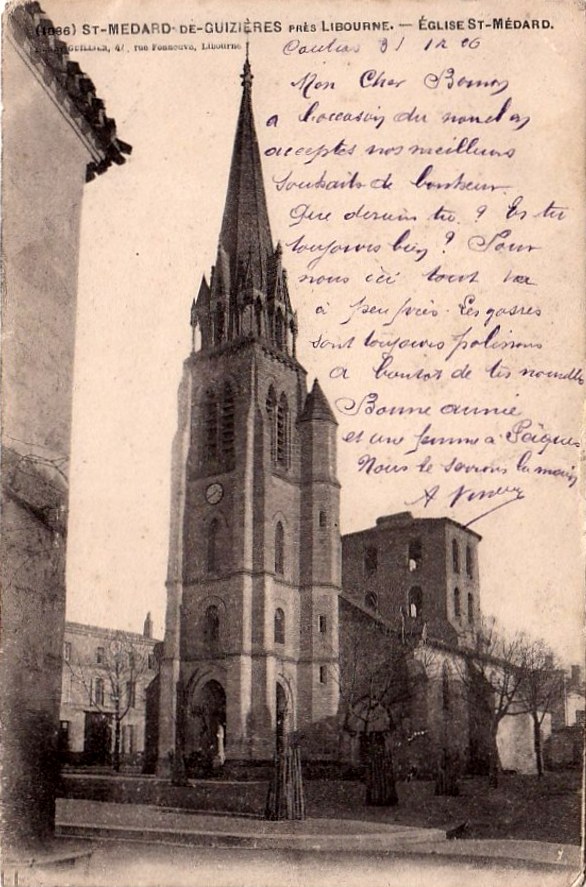 (1086) ST-MEDARD-DE-GUIZIÈRES PRÈS LIBOURNE. — ÉGLISE ST-MÉDARD.
GUILLIER, 47, rue Fonneuve, Libourne
31 12 06
Mon Cher
a l'occasion du nouvel an
acceptes nos meilleurs
souhaits de bonheur
Que deviens tu ? Es tu
toujours bien ? Pour
nous ici tout va
à peu près. Les gosses
sont toujours polissons
A bientot de tes nouvelles
Bonne année
et une femme a Pâques
Nous te serrons la main
A